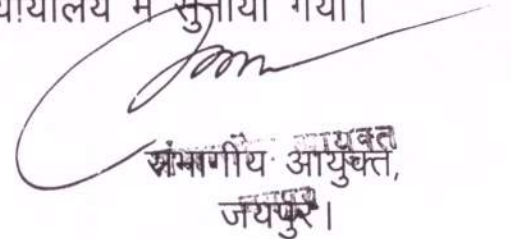 न्यायालय में सुनाया गया।
संभागीय आयुक्त,
जयपुर।